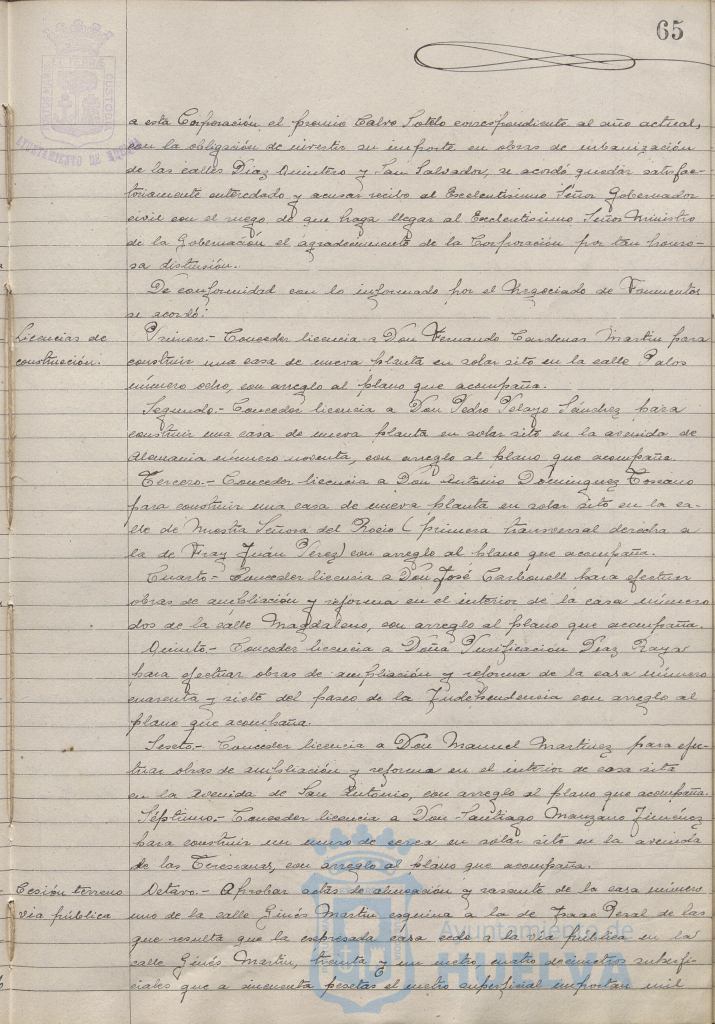 65
CUSTODIA
AYUNTAMIENTO DE HUELVA
a esta Corporación el premio Calvo Sotelo correspondiente al año actual,
con la obligación de invertir su importe en obras de urbanización
de las calles Díaz Quintero y San Salvador, se acordó quedar satisfac-
toriamente enteredado y acusar recibo al Excelentisimo Señor Gobernador
civil con el ruego de que haga llegar al Excelentisimo Señor Ministro
de la Gobernación el agradecimiento de la Corporación por tan honro-
sa distinsión.-
De conformidad con lo informado por el Negociado de Fomentos
se acordó:
Licencias de
construcción.
Primero.- Conceder licencia a Don Fernando Cardenas Martin para
construir una casa de nueva planta en solar sito en la calle Palos
número ocho, con arreglo al plano que acompaña.
Segundo.- Conceder licencia a Don Pedro Pelayo Sánchez para
construir una casa de nueva planta en solar sito en la avenida de
Alemania número noventa, con arreglo al plano que acompaña.
Tercero.- Conceder licencia a Don Antonio Dominguez Toscano
para construir una casa de nueva planta en solar sito en la ca-
lle de Nuestra Señora del Rocio (primera transversal derecha a
la de Fray Juán Pérez) con arreglo al plano que acompaña.
Cuarto.- Conceder licencia a Don José Carbonell para efectuar
obras de ampliación y reforma en el interior de la casa número
dos de la calle Magdalena, con arreglo al plano que acompaña.
Quinto.- Conceder licencia a Doña Purificación Diaz Raya
para efectuar obras de ampliación y reforma de la casa número
cuarenta y siete del paseo de la Independencia con arreglo al
plano que acompaña.
Sexto.- Conceder licencia a Don Manuel Martinez para efec-
tuar obras de ampliación y reforma en el interior de casa sita
en la Avenida de San Antonio, con arreglo al plano que acompaña.
Séptimo.- Conceder licencia a Don Santiago Manzano Jiménez
para construir un muro de cerca en solar sito en la avenida
de las Teresianas, con arreglo al plano que acompaña.
Cesión terreno
via pública
Octavo.- Aprobar actas de alineación y rasante de la casa número
uno de la calle Ginés Martin esquina a la de Isaac Peral de las
que resulta que la expresada casa cede a la via pública en la
calle Ginés Martin, treinta y un metro, cuatro decimetros superfi-
ciales que a cincuenta pesetas el metro superficial importan mil
Ayuntamiento de
HUELVA